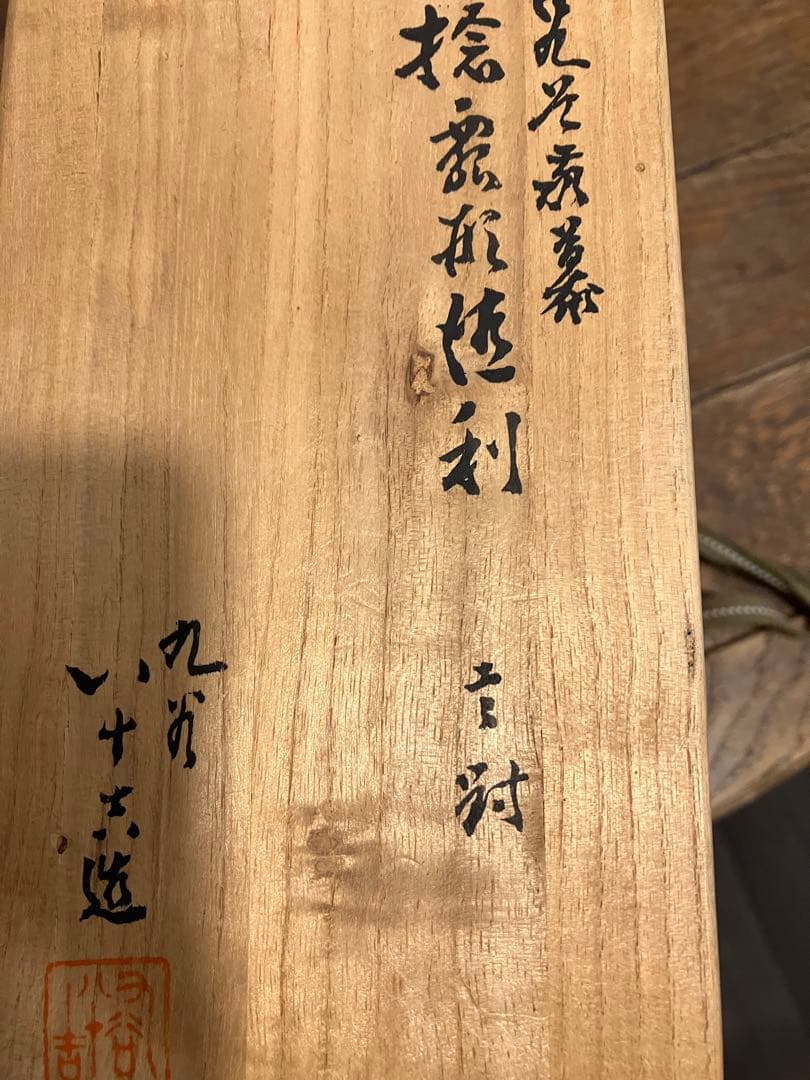 九谷
捻瓢形徳利 壱対
九谷
八十吉造
九谷
八十吉